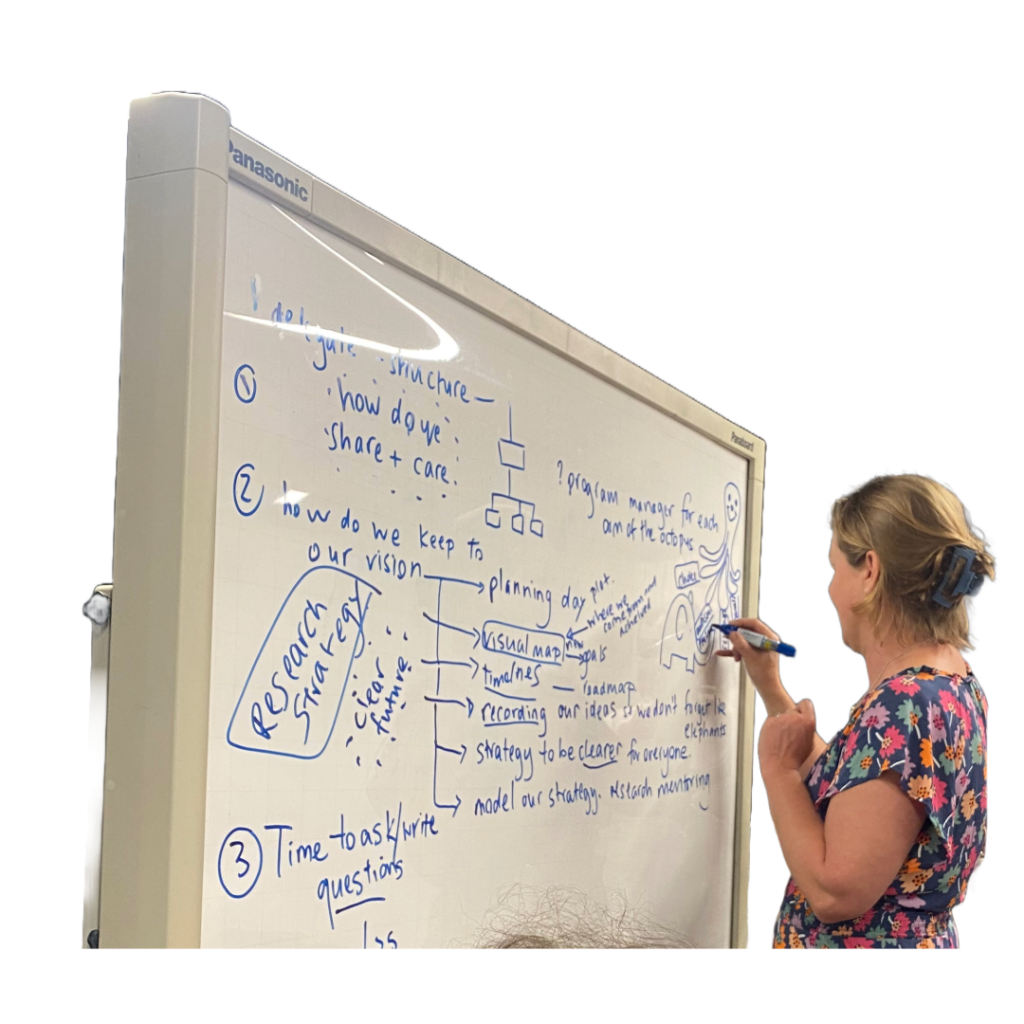 Panasonic
Panaboard
delegate structure —
① how do we
share + care.
? program manager for each
arm of the octopus
② how do we keep to
our vision
Research
Strategy
clear
future
planning day plat.
visual map
where we
come from and
achieved
now
goals
timelines — roadmap
recording our ideas so we don't forget like
elephants
strategy to be clearer for everyone.
model our strategy. research mentoring
③ Time to ask/write
questions